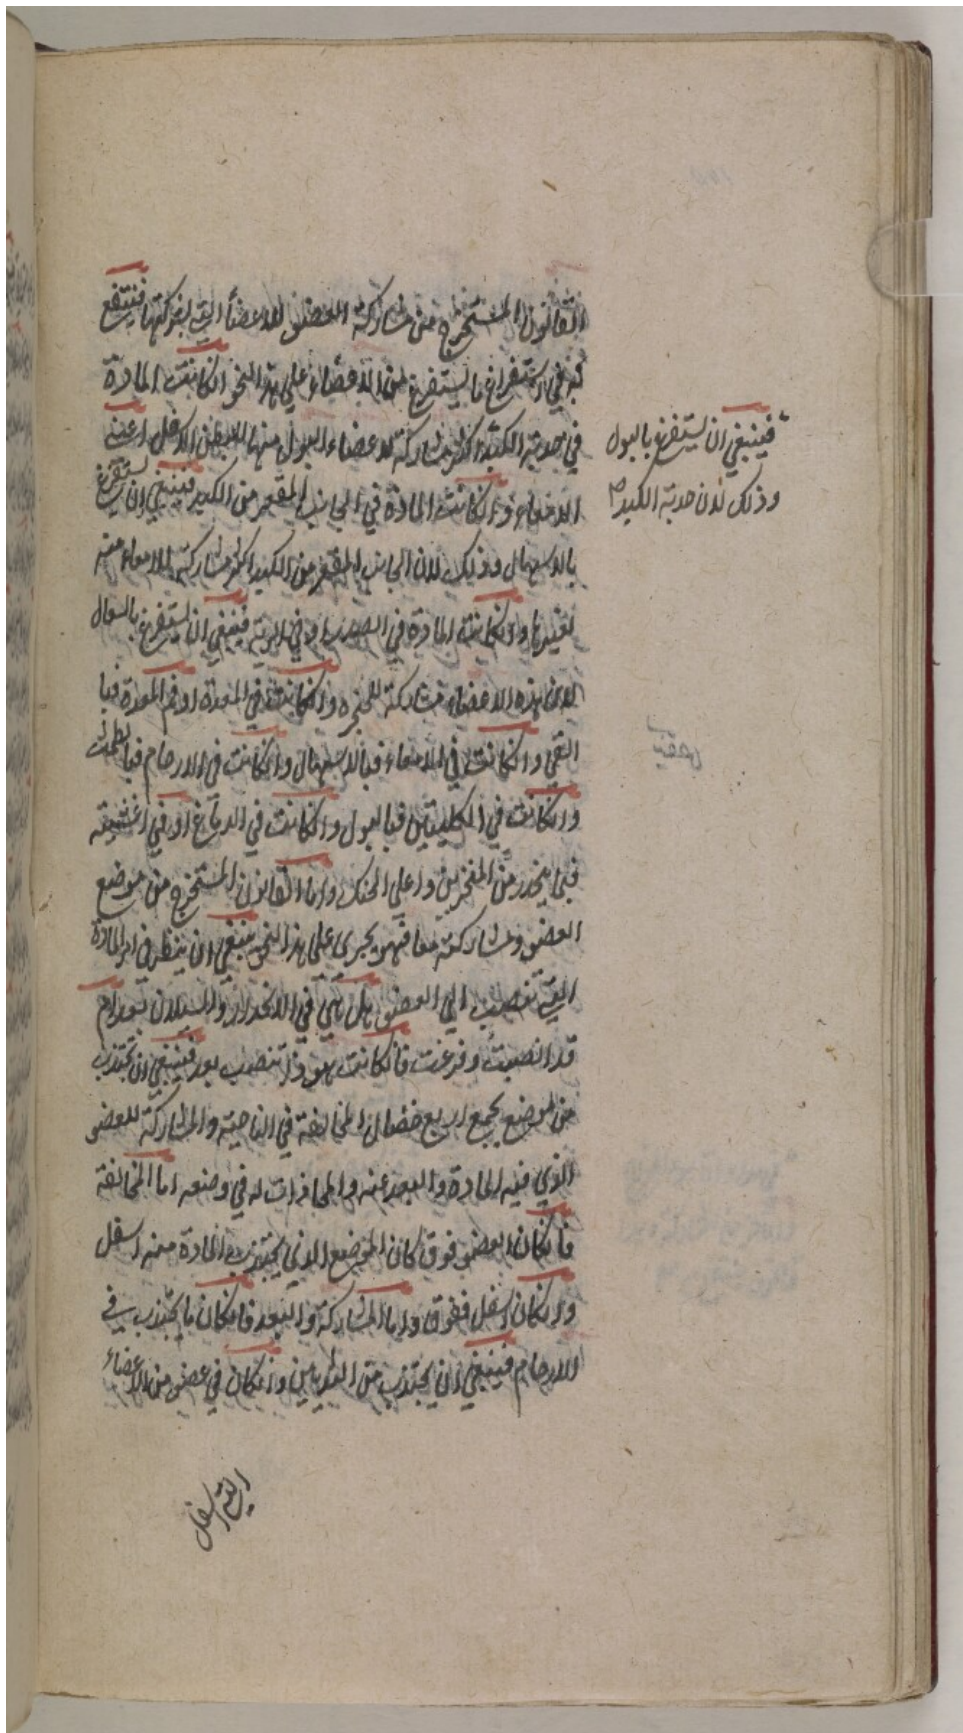 القانون المستخرج من مشاركة العضو للاعضاء التي يشركها فينتفع
به في استفراغ ما يستفرغ من الاعضاء علي هذا النحو ان كانت المادة
في حدبة الكبد اكثر مشاركة لاعضاء البول منها للبطن الاسفل اعني
الامعاء وان كانت المادة في الجانب المقعر من الكبد فينبغي ان يستفرغ
بالاسهال وذلك لان الجانب المقعر من الكبد اكثر مشاركة للامعاء منه
لغيرها وان كانت المادة في الصدر او في الرية فينبغي ان يستفرغ بالسعال
لان هذه الاعضاء مشاركة للحنجره وان كانت في المعدة او فم المعدة فبا
القي وان كانت في الامعاء فبالاسهال وان كانت في الارحام فبالطمث
وان كانت في الكليتين فبالبول وان كانت في الدماغ او في اغشيته
فبما ينحدر من المنخرين واعلي الحنك واما القانون المستخرج من موضع
العضو ومشاركته معا فهو يجري علي هذا النحو ينبغي ان ينظر في امر المادة
التي تنصب الي العضو هل هي في الانحدار والسيلان بعد ام
قد انصبت وفرغت فان كانت هو ذا تنصب بعد فينبغي ان تجتذب
من موضع يجمع اربع خصال المخالفة في الناحية والمشاركة للعضو
الذي فيه المادة والبعد عنه والمحاذات له في وضعه اما المخالفة
فان كان العضو فوق كان الموضع الذي يجتذب المادة منه اسفل
وان كان اسفل ففوق واما المشاركة والبعد فان كان ما يجتذب في
الارحام فينبغي ان يجتذب من الثديين وان كان في عضو من الاعضاء
التي اسفل
فينبغي ان يستفرغ بالبول
وذلك لان حدبة الكبد